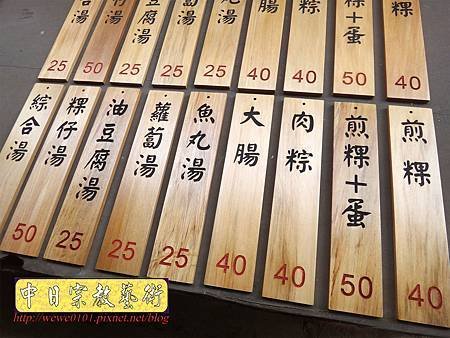 仔湯
豆腐湯
蔔湯
丸湯
腸
粽
粿+蛋
粿
25
50
25
25
25
40
40
50
40
綜合湯
50
粿仔湯
25
油豆腐湯
25
蘿蔔湯
25
魚丸湯
25
大腸
40
肉粽
40
煎粿+蛋
50
煎粿
40
中日宗教藝術
http://wewe0101.pixnet.net/blog